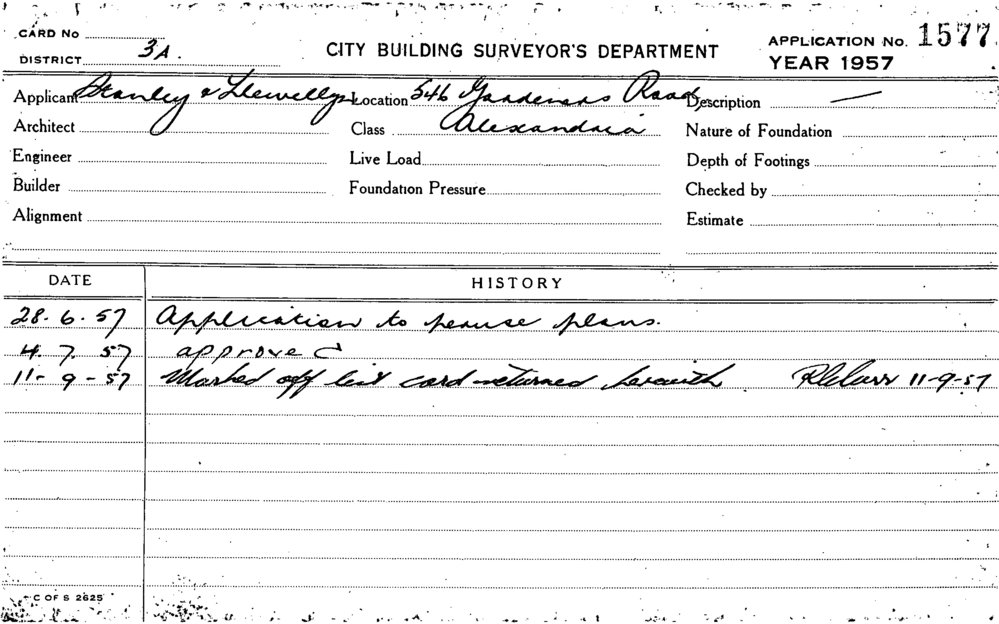 CARD No
DISTRICT 3A.
CITY BUILDING SURVEYOR'S DEPARTMENT
APPLICATION No. 1577
YEAR 1957
Applicant Stanley & Llewellyn Location 546 Gardeners Road, Description —
Architect Class Alexandria Nature of Foundation
Engineer Live Load Depth of Footings
Builder Foundation Pressure Checked by
Alignment Estimate
DATE HISTORY
28.6.57 Application to peruse plans.
4.7.57 approved
11-9-57 Marked off list card returned herewith 11-9-57
C OF S 2625